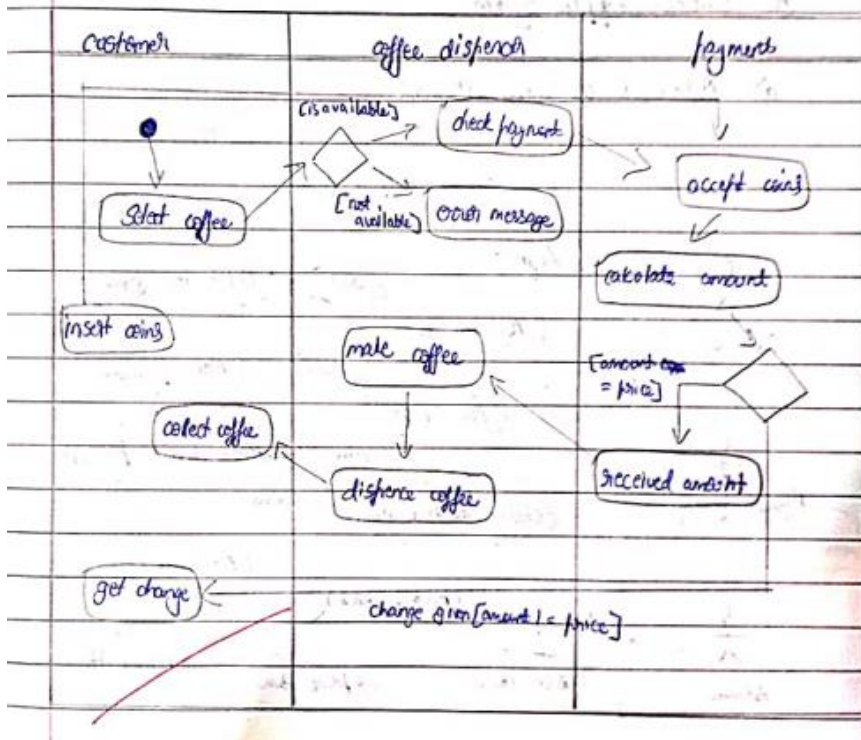 customer
coffee dispencer
payments
[is available]
check payment
accept coins
Select coffee
[not
available]
error message
calculate amount
insert coins
make coffee
[amount
= price]
collect coffee
dispence coffee
received amount
get change
change given [amount != price]